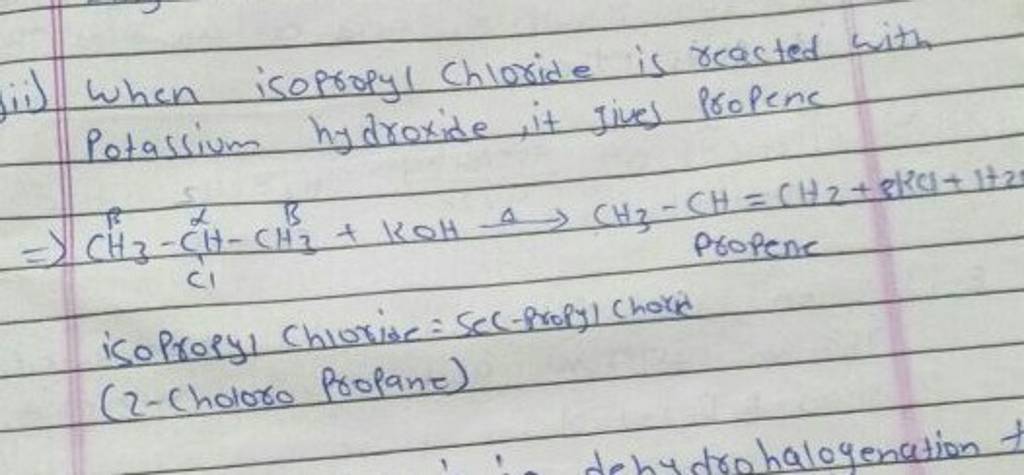 iii) When isopropyl Chloride is reacted with
Potassium hydroxide, it gives Propene
β α β
=> CH3 - CH - CH3 + KOH Δ→ CH3 - CH = CH2 + KCl + H2O
Cl Propene
isopropyl Chloride = Sec-propyl Chorid
(2-Choloro Propane)
dehydrohalogenation